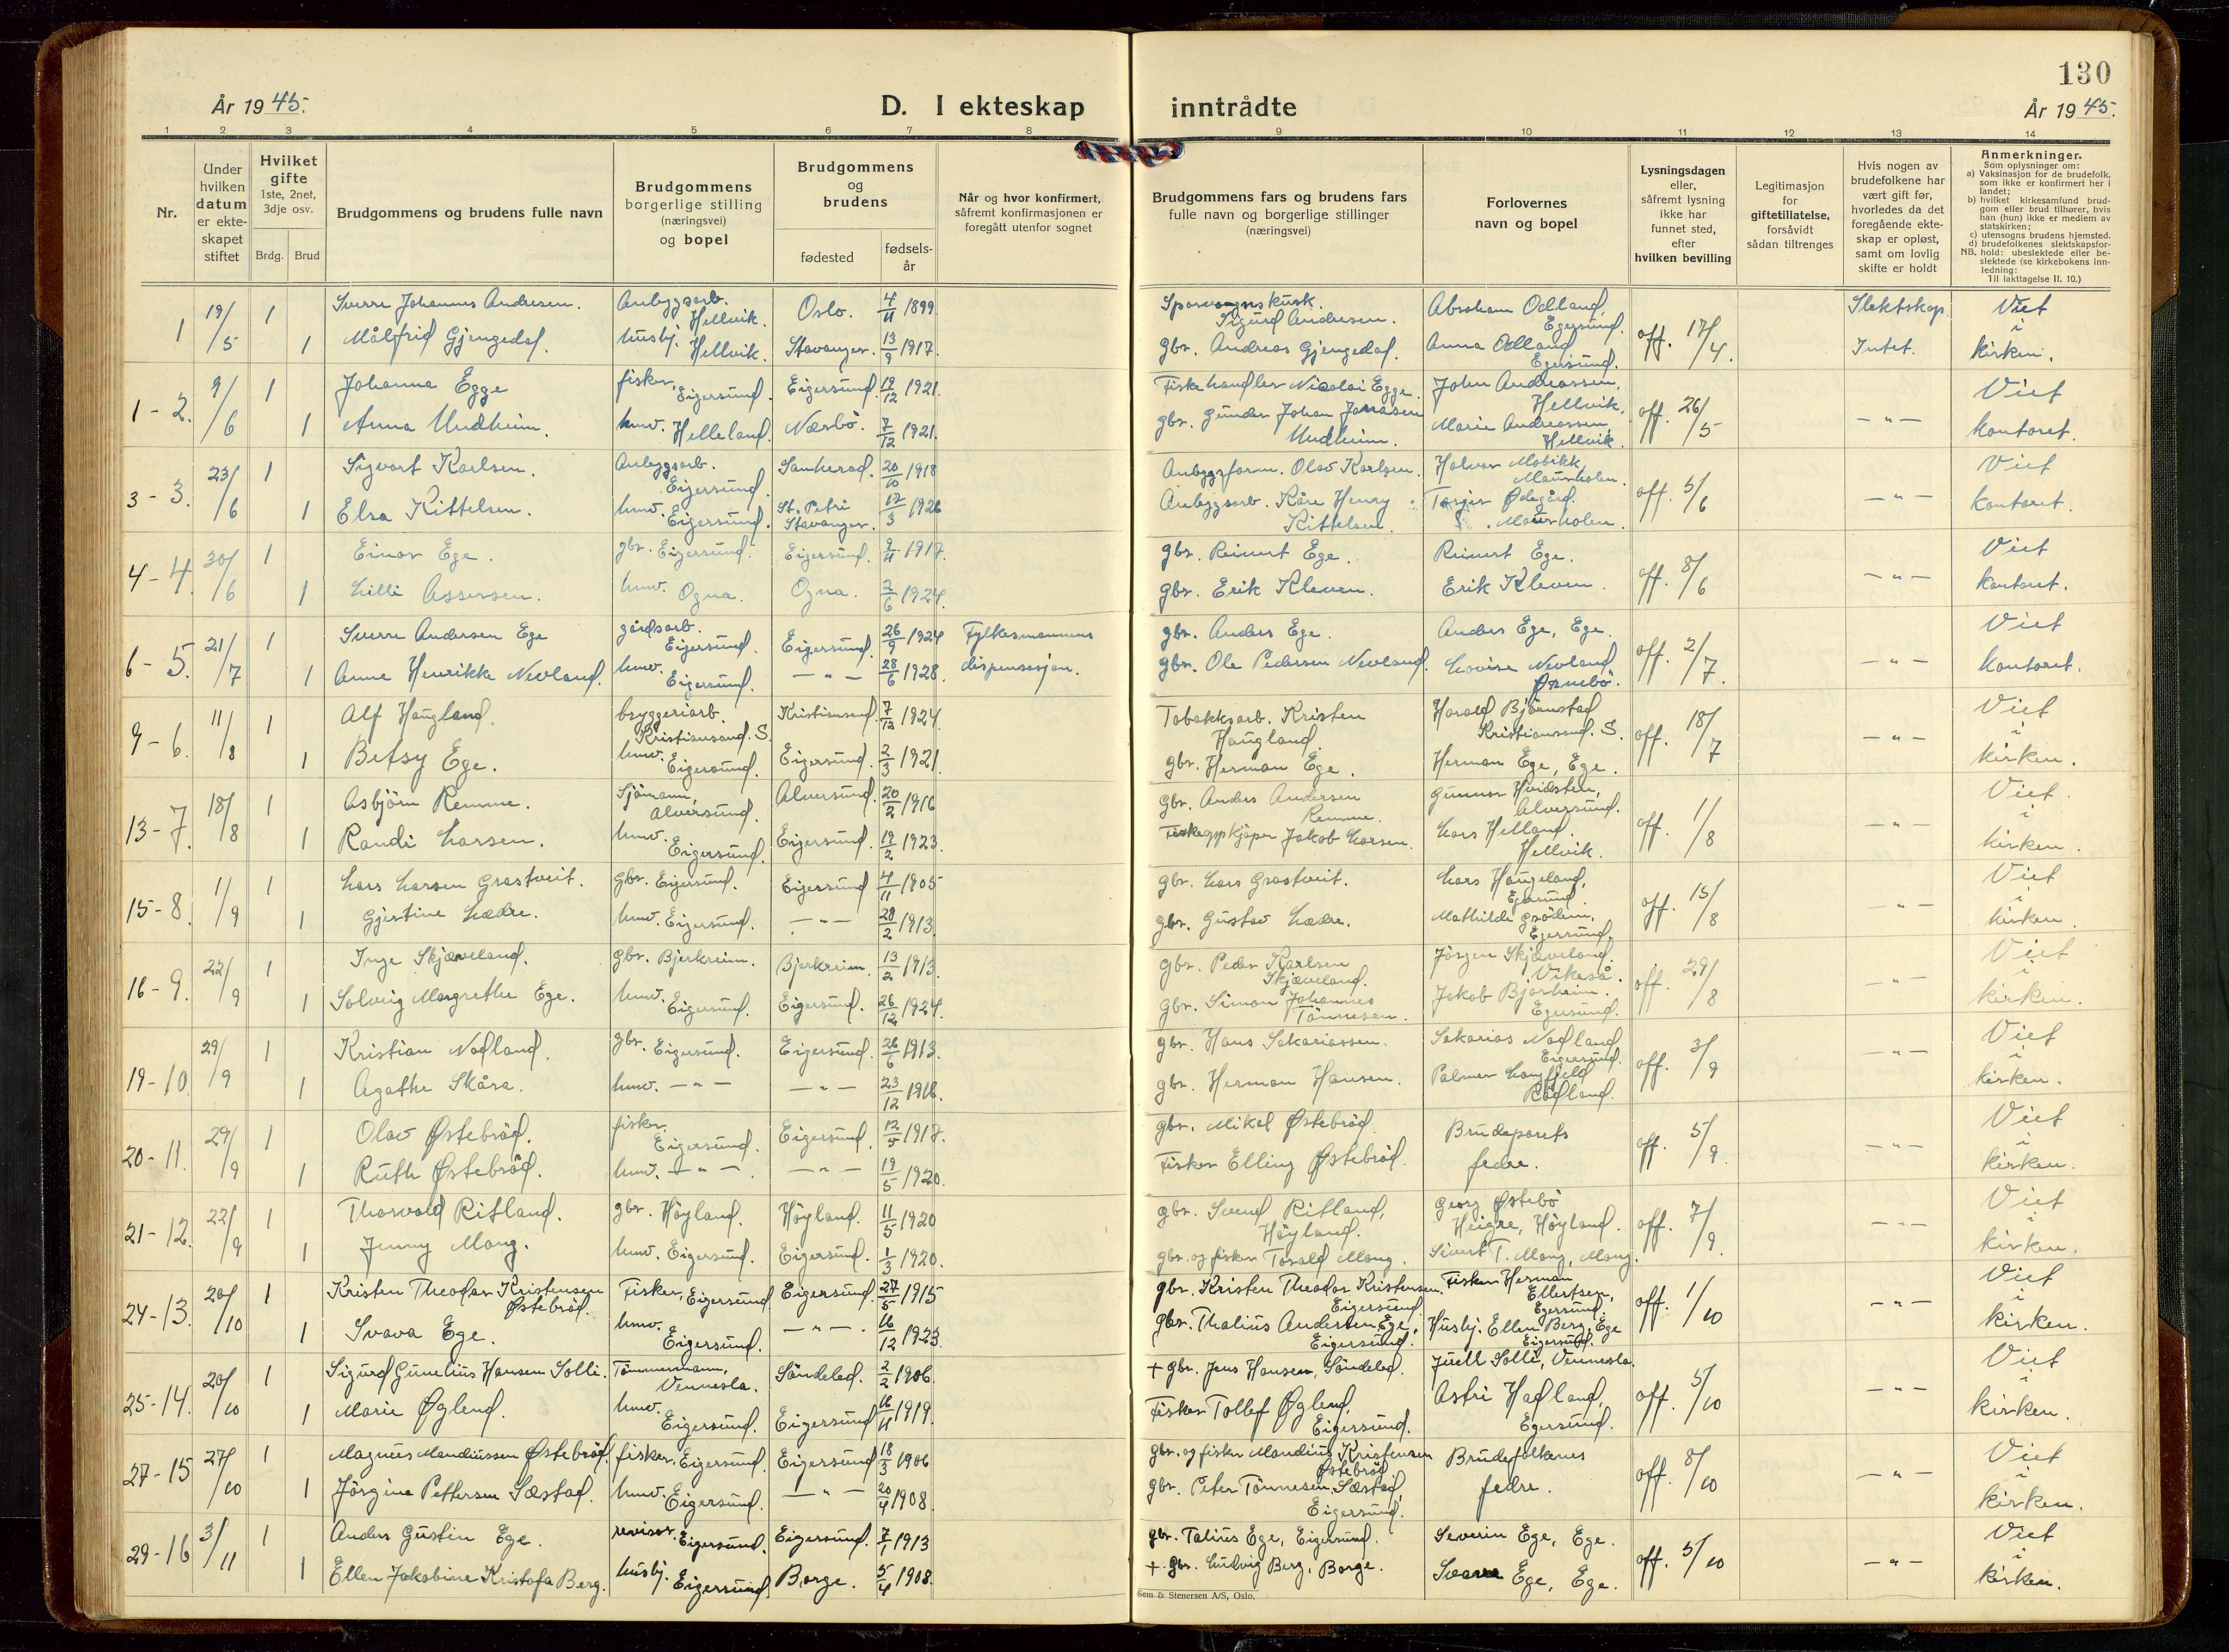 130
År 1945.
D. I ekteskap inntrådte
År 1945.
1 2 3 4 5 6 7 8 9 10 11 12 13 14
Nr.
Under hvilken datum er ekteskapet stiftet
Hvilket gifte 1ste, 2net, 3dje osv.
Brdg. Brud
Brudgommens og brudens fulle navn
Brudgommens borgerlige stilling (næringsvei) og bopel
Brudgommens og brudens
fødested
fødsels-år
Når og hvor konfirmert, såfremt konfirmasjonen er foregått utenfor sognet
Brudgommens fars og brudens fars fulle navn og borgerlige stillinger (næringsvei)
Forlovernes navn og bopel
Lysningsdagen eller, såfremt lysning ikke har funnet sted, efter hvilken bevilling
Legitimasjon for giftetillatelse, forsåvidt sådan tiltrenges
Hvis nogen av brudefolkene har vært gift før, hvorledes da det foregående ekteskap er opløst, samt om lovlig skifte er holdt
Anmerkninger.
Som oplysninger om:
a) Vaksinasjon for de brudefolk, som ikke er konfirmert her i landet;
b) hvilket kirkesamfund brudgom eller brud tilhører, hvis han (hun) ikke er medlem av statskirken;
c) utensogns brudens hjemsted.
d) brudefolkenes slektskapsforhold: ubeslektede eller beslektede (se kirkebokens innledning:
NB. Til iakttagelse II. 10.)
1 19/5 1 Sverre Johannes Andresen. Anleggsarb. Hellvik. Oslo. 4/11 1899 Sporvognskusk. Sigurd Andresen. Abraham Odland, Egersund. off. 17/4. Slektskap Viet i
1 Målfrid Gjengedal. husbj. Hellvik. Stavanger. 13/9 1917. gbr. Andreas Gjengedal. Anna Odland Egersund. Intet. kirken.
1-2. 9/6 1 Johannes Egge fisker, Eigersund. Eigersund. 12/12 1921. Fiskehandler Nicolai Egge. John Andreassen, Hellvik. off. 26/5 -"- Viet
1 Anna Undheim. hmv. Helleland. Nærbö. 7/12 1921. gbr. Gunder Johan Jonassen Undheim. Marie Andreassen, Hellvik. kontoret.
3-3. 23/6 1 Sigvart Karlsen. Anleggsarb. Eigersund. Sankerød. 20/10 1918 Anleggsform. Olav Karlsen. Halvor Mobikk, Maurholen. off. 5/6 -"- Viet
1 Elsa Kittelsen. hmv. Eigersund. St. Petri Stavanger. 17/3 1926 Anleggsarb. Kåre Henry Kittelsen. Torger Ødegård. Maurholen. kontoret.
4-4. 30/6 1 Einar Ege. gbr. Eigersund. Eigersund. 9/11 1917. gbr. Reinert Ege. Reinert Ege. off. 8/6 -"- Viet
1 Lilli Assersen. hmv. Ogna. Ogna. 2/6 1924. gbr. Erik Kleven. Erik Kleven. kontoret.
6-5. 21/7 1 Sverre Andersen Ege gårdsarb. Eigersund. Eigersund. 26/9 1924 Fylkesmannens gbr. Anders Ege. Anders Ege, Ege. off. 2/7. -"- Viet
1 Anne Henrikke Nevland. hmv. Eigersund. -"- 28/6 1928. dispensasjon. gbr. Ole Pedersen Nevland. Lovise Nevland, Ørnebö. kontoret.
9-6. 11/8 1 Alf Haugland. bryggeriarb. Kristiansand. S. Kristiansand. 7/12 1924. Tobakksarb. Kristen Haugland. Harald Björnstad Kristiansand. S. off. 18/7 -"- Viet i
1 Betsy Ege. hmv. Eigersund. Eigersund. 2/3 1921. gbr. Herman Ege. Herman Ege, Ege. kirken.
13-7. 18/8 1 Asbjörn Remme. Sjömann, Alversund. Alversund. 20/2 1916 gbr. Anders Andersen Remme. Gunnar Hvidsten, Alversund. off. 1/8 -"- Viet. i
1 Randi Larsen. hmv. Eigersund. Eigersund. 19/2 1923. Fiskeoppkjøper Jakob Larsen. Lars Helland. Hellvik. kirken.
15-8. 1/9 1 Lars Larsen Grastveit. gbr. Eigersund. Eigersund 4/11 1905 gbr. Lars Grastveit. Lars Haugeland, Egersund. off. 15/8 -"- Viet i
1 Gjertine Lædre. hmv. Eigersund. -"- 28/2 1913. gbr. Gustav Lædre. Mathilde Grödem, Egersund. kirken.
16-9. 22/9 1 Inge Skjæveland. gbr. Bjerkreim. Bjerkreim. 13/2 1913. gbr. Peder Karlsen Skjæveland. Jörgen Skjæveland. Vikeså. off. 29/8 -"- Viet i
1 Solveig Margrethe Ege. hmv. Eigersund. Eigersund. 26/12 1924. gbr. Simon Johannes Tönnesen. Jakob Bjorheim. Egersund. kirken.
19-10. 29/9 1 Kristian Nodland. gbr. Eigersund. Eigersund. 26/6 1913. gbr. Hans Sakariassen. Sakarias Nodland Eigersund. off. 3/9 -"- Viet i
1 Agathe Skåra. hmv. -"- -"- 23/12 1916. gbr. Herman Hansen. Palmer Langfjeld Rodland. kirken.
20-11. 29/9 1 Olav Östebröd. fisker, Eigersund. Eigersund. 12/5 1917. gbr. Mikal Östebröd. Brudeparets off. 5/9. -"- Viet i
1 Ruth Östebröd. hmv. -"- -"- 19/5 1920. Fisker Elling Östebröd. fedre. kirken.
21-12. 22/9 1 Thorvald Ritland. gbr. Höyland. Höyland. 11/5 1920 gbr. Svend Ritland, Höyland. Georg Östebö Heigre, Höyland. off. 7/9. -"- Viet i
1 Jenny Mong. hmv. Eigersund. Eigersund. 1/3 1920. gbr. og fisker Torald Mong. Sivert T. Mong, Mong. kirken.
24-13. 20/10 1 Kristen Theodor Kristensen Östebröd. Fisker, Eigersund Eigersund. 27/5 1915 gbr. Kristen Theodor Kristensen. Eigersund. Fisker Herman Ellertsen, Egersund. off. 1/10 -"- Viet i
1 Svava Ege. hmv. Eigersund. -"-. 16/12 1923. gbr. Thalius Andersen Ege, Eigersund. Husbj. Ellen Berg, Ege Eigersund. kirken.
25-14. 20/10 1 Sigurd Gunelius Hansen Solli. Tömmermann, Vennesla. Söndeled. 2/2 1906. + gbr. Jens Hansen, Söndeled. Juell Solli, Vennesla. off. 5/10 -"- Viet i
1 Marie Öglend. hmv. Eigersund. Eigersund 16/11 1919. Fisker Tollef Öglend, Eigersund. Astri Hadland, Egersund. kirken.
27-15 27/10 1 Magnus Mandiussen Östebröd. fisker. Eigersund. Eigersund 18/3 1906 gbr. og fisker Mandius Kristensen Östebröd Brudefolkenes off. 8/10 -"- Viet i
1 Jörgine Pettersen Sæstad. hmv. Eigersund. -"- 20/4 1908. gbr. Peter Tönnesen Sæstad, Eigersund. fedre. kirken.
29-16 3/11 1 Anders Gustin Ege. revisor. Eigersund. Eigersund. 7/1 1913 gbr. Talius Ege, Eigersund. Severin Ege, Ege. off. 5/10 -"- Viet i
1 Ellen Jakobine Kristofa Berg. husbj. Eigersund Borge. 5/4 1908. + gbr. Ludvig Berg, Borge. Ege, Ege. kirken.
Sem & Stenersen A/S, Oslo.